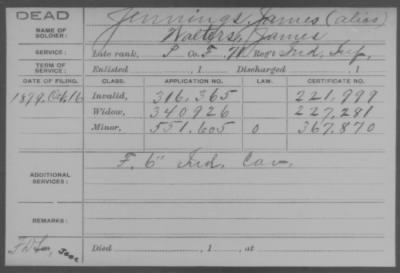 DEAD
NAME OF SOLDIER: Jennings, James (alias)
Walters, James
SERVICE: Late rank, P Co. F, 71 Reg't Ind. Inf.
TERM OF SERVICE: Enlisted , 1 Discharged , 1
DATE OF FILING. CLASS. APPLICATION NO. LAW. CERTIFICATE NO.
1879. Oct. 16 Invalid, 316,365 221,999
Widow, 340926 227,281
Minor, 551,605 0 367,870
ADDITIONAL SERVICES: F. 6" Ind. Cav.
REMARKS:
Died , 1 , at